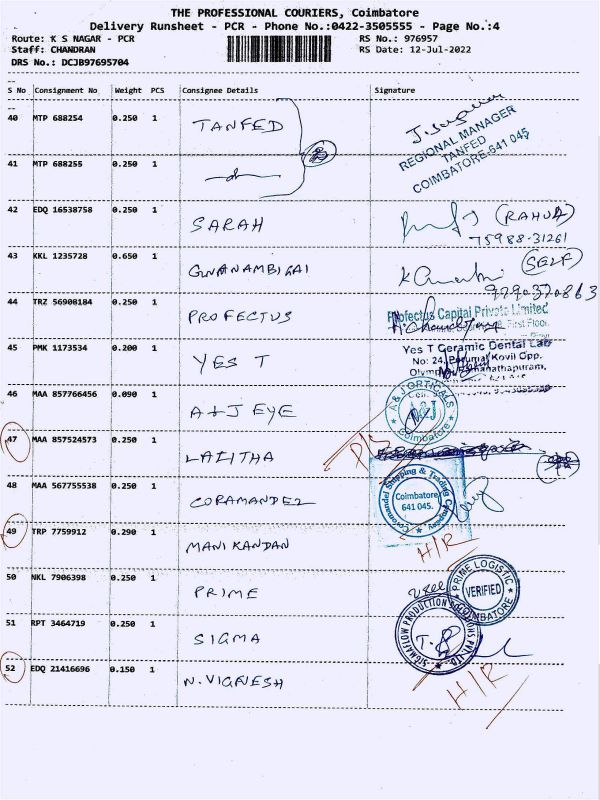 THE PROFESSIONAL COURIERS, Coimbatore
Delivery Runsheet - PCR - Phone No.:0422-3505555 - Page No.:4
Route: K S NAGAR - PCR RS No.: 976957
Staff: CHANDRAN RS Date: 12-Jul-2022
DRS No.: DCJB97695704
S No Consignment No Weight PCS Consignee Details Signature
40 MTP 688254 0.250 1 TANFED
REGIONAL MANAGER
TANFED
COIMBATORE-641 045
41 MTP 688255 0.250 1
42 EDQ 16538758 0.250 1 SARAH (RAHUL)
75988-31261
43 KKL 1235728 0.650 1 GNANAMBIGAI (SELF)
9790370863
44 TRZ 56908184 0.250 1 PROFECTUS
Profectus Capital Private Limited
First Floor
45 PMK 1173534 0.200 1 YES T
Yes T Ceramic Dental Lab
No: 24, Perumal Kovil Opp.
Olympus, Ramanathapuram,
46 MAA 857766456 0.090 1 A & J EYE
A & J ORTICALS
A&J
Coimbatore
47 MAA 857524573 0.250 1 LALITHA P/S
48 MAA 567755538 0.250 1 CORAMANDEL
Coromandel Shipping & Trading Company
Coimbatore
641 045.
49 TRP 7759912 0.290 1 MANIKANDAN H/R
50 NKL 7906398 0.250 1 PRIME
PRIME LOGISTIC
VERIFIED
COIMBATORE
51 RPT 3464719 0.250 1 SIGMA
SIGMAFLOW PRODUCTION SOLUTIONS PVT. LTD.
52 EDQ 21416696 0.150 1 N. VIGNESH H/R